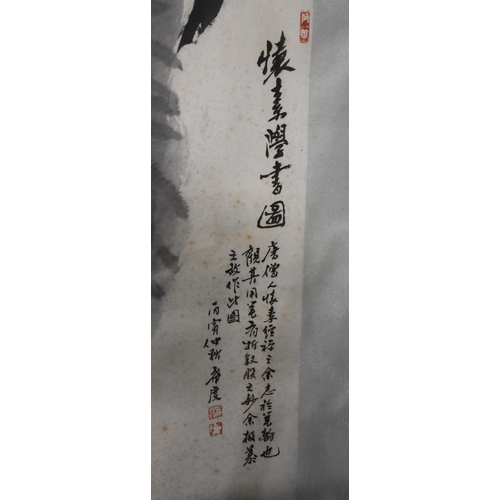 懷素學書圖
唐僧人懷素經禪之余志於筆翰也
觀其用筆有折釵股之妙余極慕
之故作此圖
丙寅仲秋